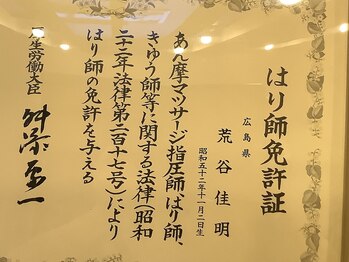 はり師免許証
広島県
荒谷佳明
昭和五十二年十一月二日生
あん摩マツサージ指圧師、はり師、
きゆう師等に関する法律（昭和
二十二年法律第二百十七号）により
はり師の免許を与える
厚生労働大臣
舛添要一